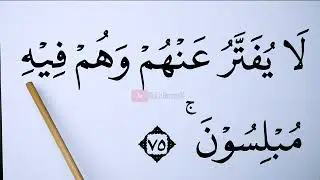 لَا يُفَتَّرُ عَنْهُمْ وَهُمْ فِيْهِ
مُبْلِسُوْنَ ۚ ﴿٧٥﴾